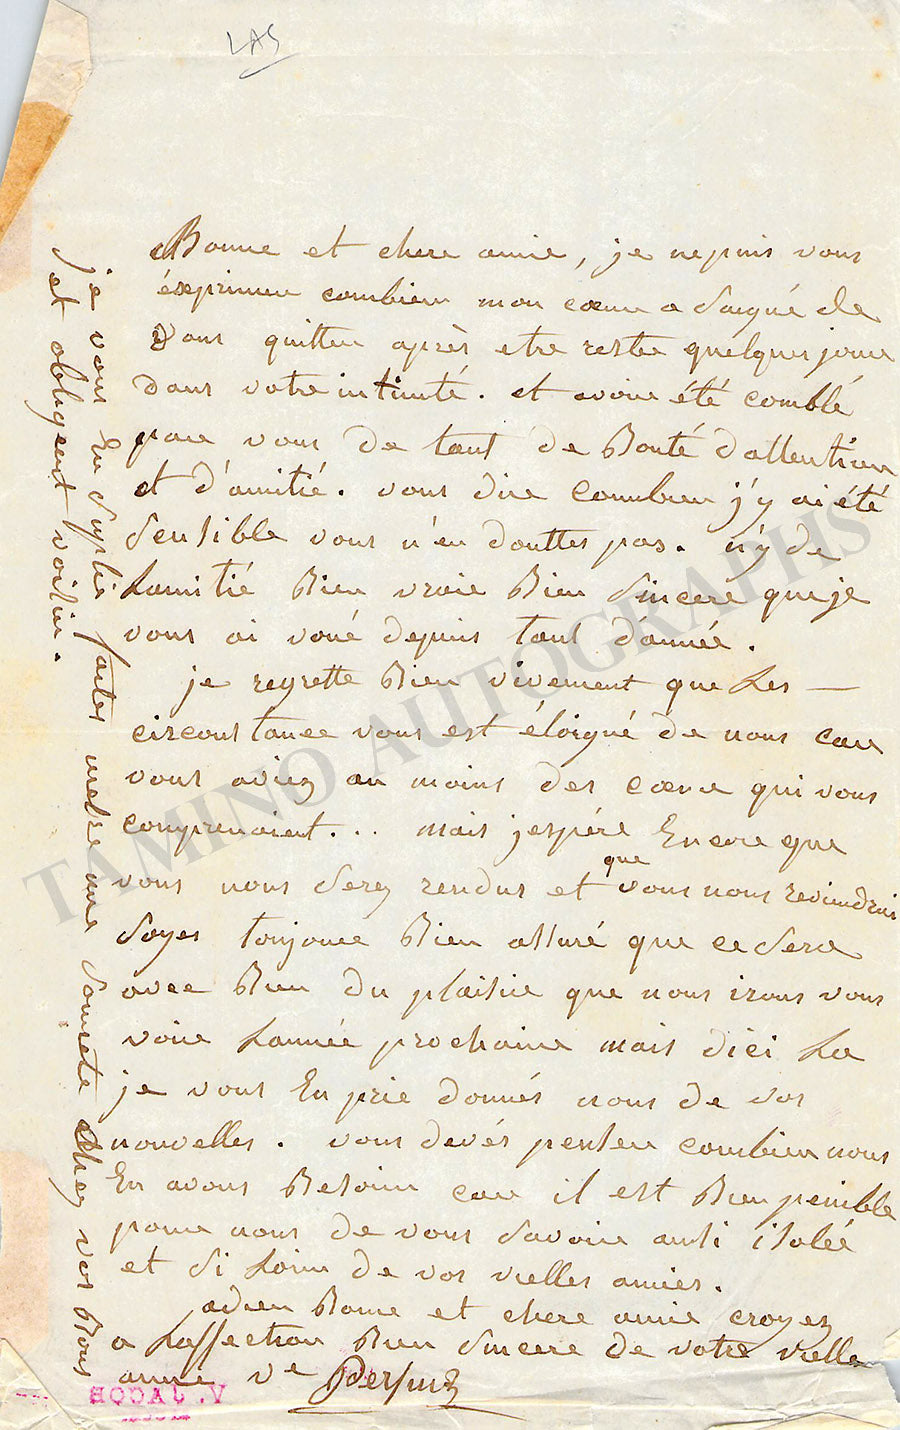 LAS
Bonne et chere amie, je nepuis vous
éxprimer combien mon cœur a Saigné de
Vous quitter après etre restée quélques jour
dans votre intimité. et avoir été comblé
par vous de tant de Bonté d'attention
et d'amitié. vous dire combien j'y ai été
Sensible vous n'en douttes pas. n'y de
Lamitié Bien vraie Bien Sincere que je
vous ai voué depuis tant d'année.
je regrette Bien vivement que Les
circonstance vous est éloigné de nous car
vous aviez au moins des cœur qui vous
comprenaient... mais jespére Encore que
vous nous Serez rendus et que vous nous reviendrai
Soyes toujour Bien assuré que ce Sera
avec Bien du plaisir que nous irons vous
voir Lannée prochaine mais dici La
je vous En prie donnés nous de vos
nouvelles. vous devés penser combien nous
En avons Besoin car il est Bien penible
pour nous de vous Savoir ausi isolée
et Si Loin de vos vielles amies.
adieu Bonne et chere amie croyez
a Laffection Bien Sincere de votre vielle
amie ve Persuis
je vous En suplie faites metre une Sonnete chez vos Bons
et obligeant voisin.
V. JACOB
TAMINO AUTOGRAPHS